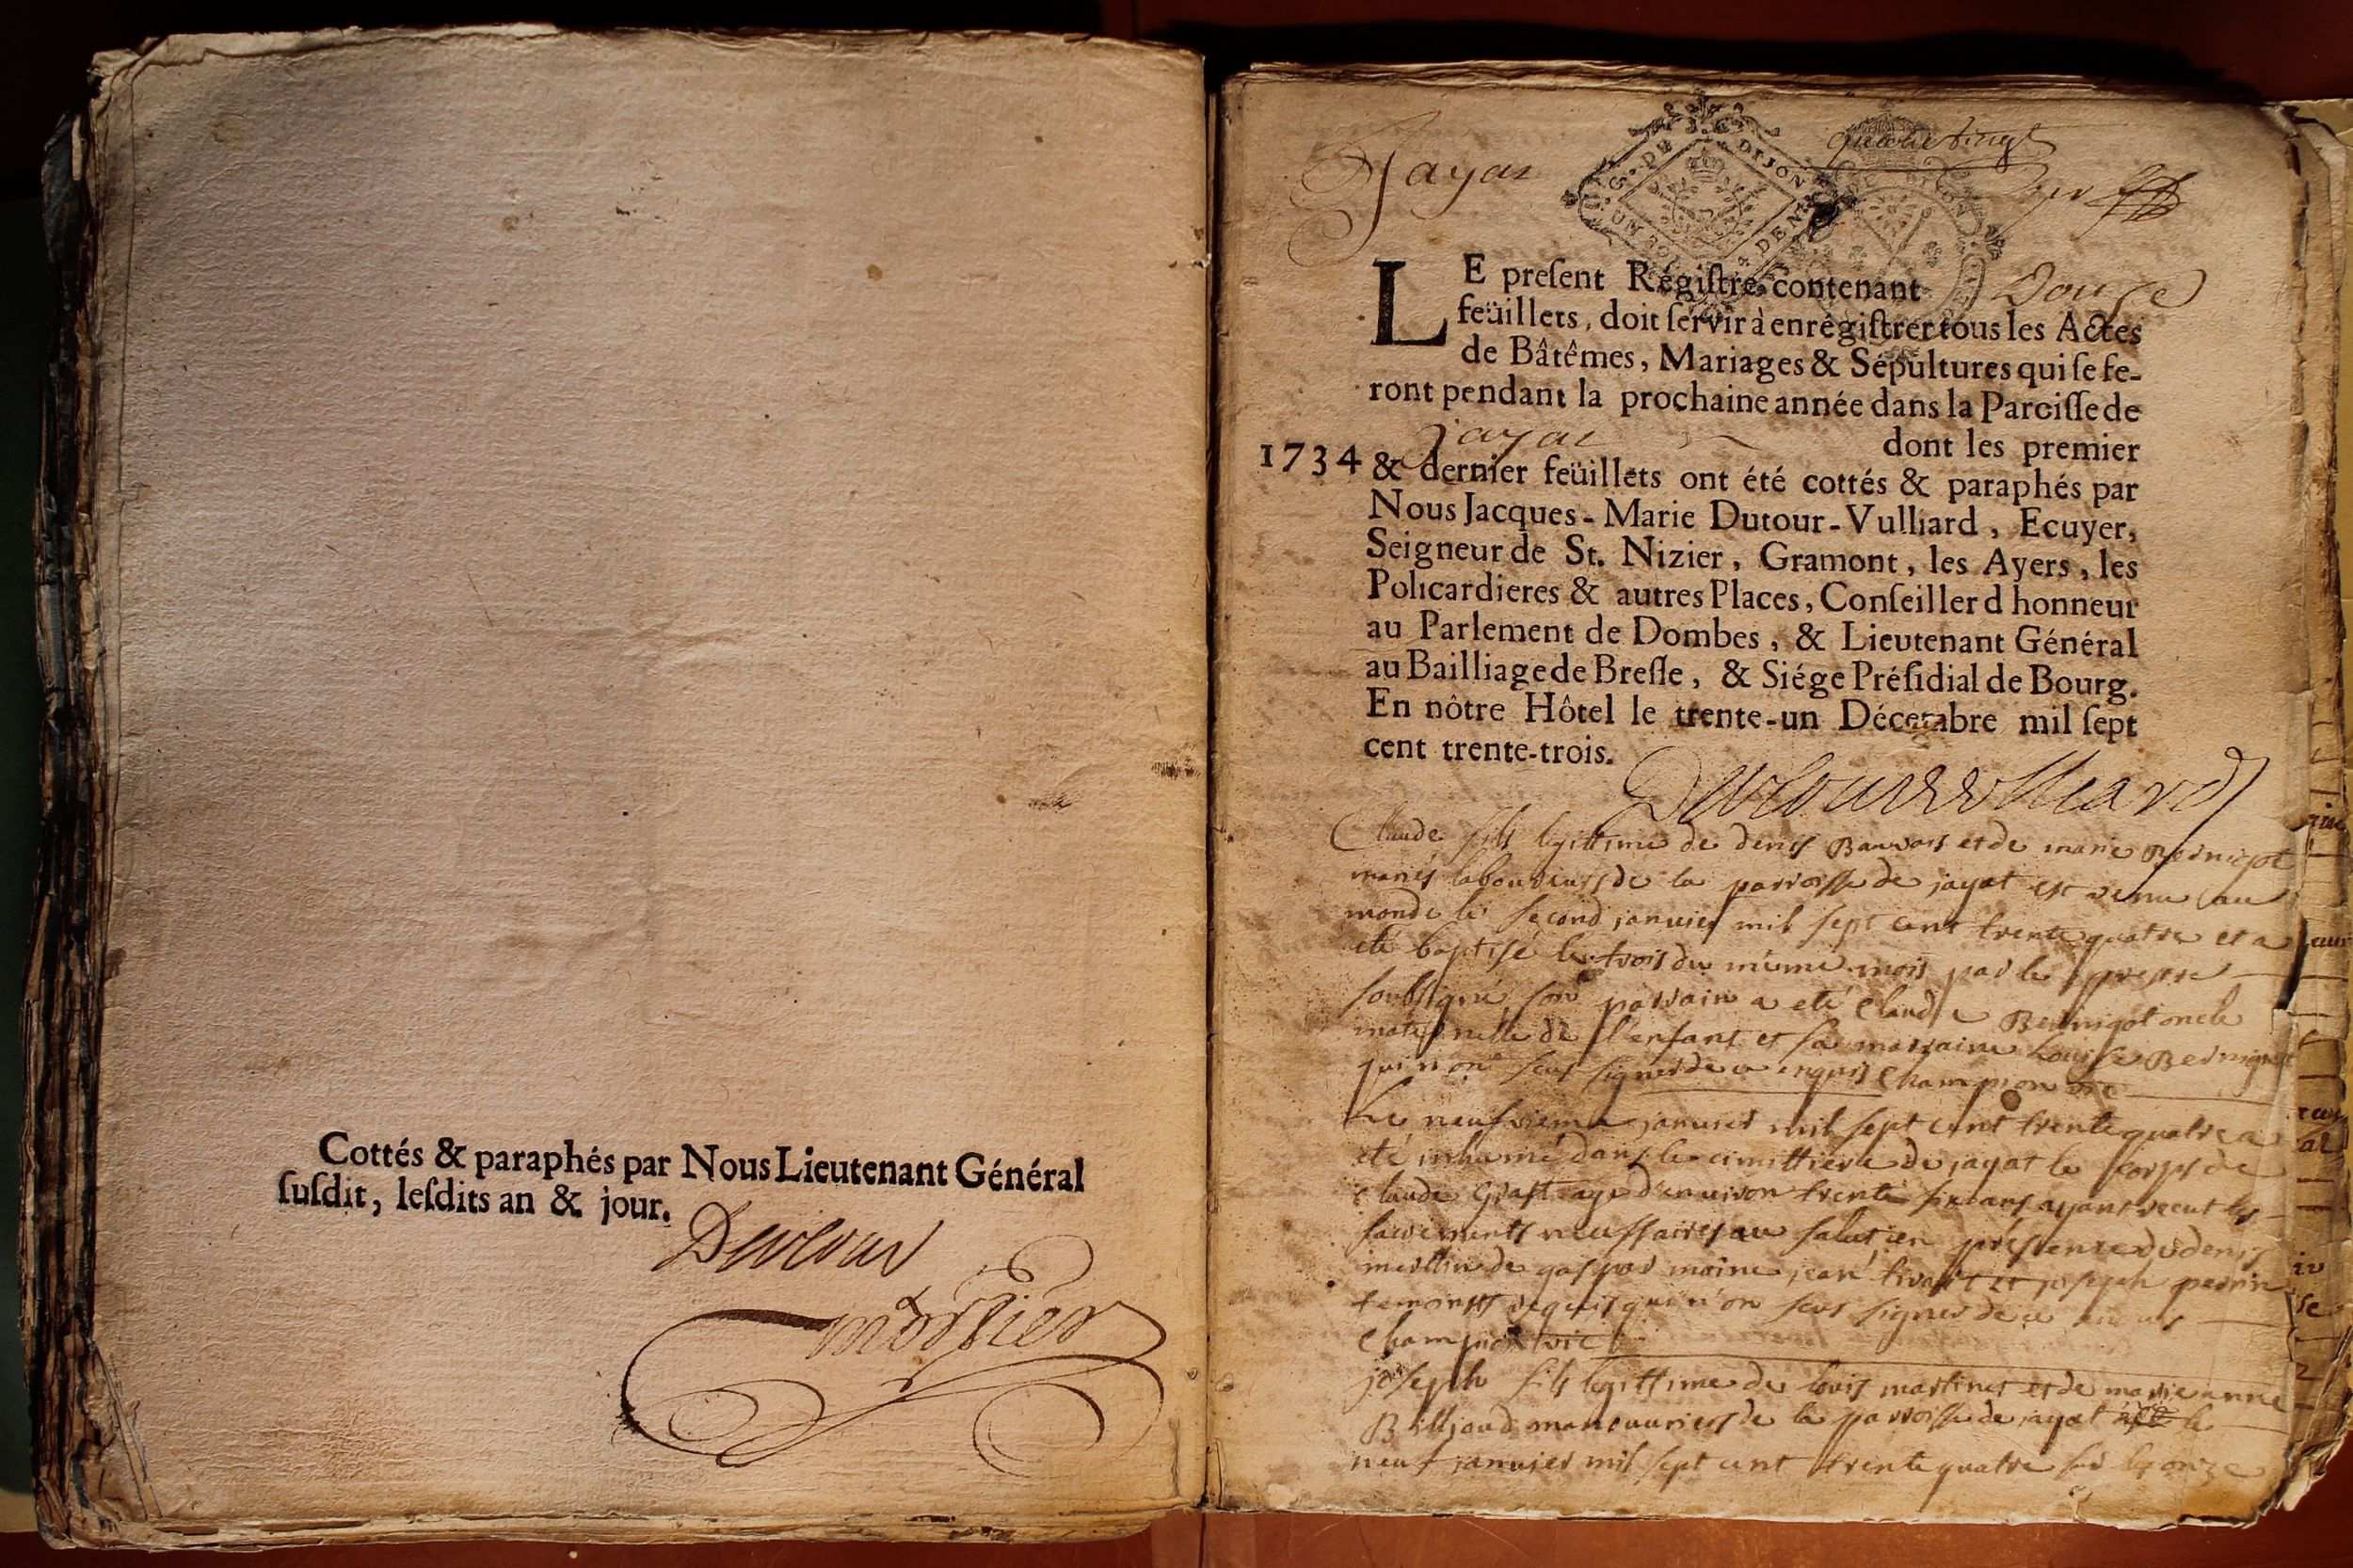 Cottés & paraphés par Nous Lieutenant Général
ſuſdit, leſdits an & jour.
Dutour
morlier
Jayat
G. DE DIJON
UN SOL DEN
quatre vingt
Douze
LE preſent Régiſtre contenant
feüillets, doit ſervir à enrégiſtrer tous les Actes
de Bâtêmes, Mariages & Sépultures qui ſe fe-
ront pendant la prochaine année dans la Paroiſſe de
jayat dont les premier
1734 & dernier feüillets ont été cottés & paraphés par
Nous Jacques-Marie Dutour-Vulliard, Ecuyer,
Seigneur de St. Nizier, Gramont, les Ayers, les
Policardieres & autres Places, Conſeiller d honneur
au Parlement de Dombes, & Lieutenant Général
au Bailliage de Breſſe, & Siége Préſidial de Bourg.
En nôtre Hôtel le trente-un Décembre mil ſept
cent trente-trois.
Dutour vulliard
Claude fils legittime de denis Bauvois et de marie Bernigot
mariés laboureurs de la parroisse de jayat est venu au
monde le second janvier mil sept cent trente quatre et a
été baptisé le trois du même mois par le
soubsigné son parrain a eté Claude Bernigot oncle
maternelle de l'enfant et sa marraine Louise Bernigot
qui n'on sçus signer de ce enquis Champion vic
Le neufvieme janvier mil sept cent trente quatre a
été inhumé dans le cimittiere de jayat le corps de
claude age d'environ trente six ans ayant recut les
sacrements necessaires au salut en présence de denis
merllin de gaspar moine jean tirant et joseph perrin
temoins requis qui n'on sçus signer de ce enquis
Champion vic
joseph fils legittime de louis martinet et de marie anne
Billioud manouvriers de la parroisse de jayat le
neuf janvier mil sept cent trente quatre le onze